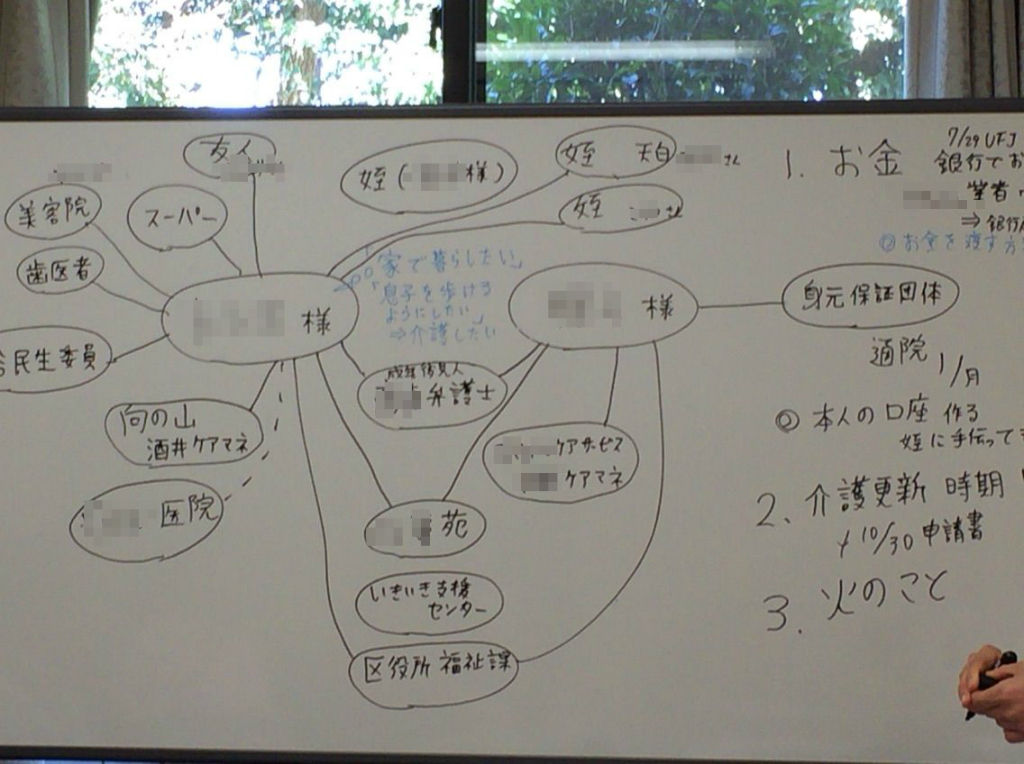 友人
姪(　様)
姪 天白　さん
姪　さん
美容院
スーパー
歯医者
様
「家で暮らしたい」
「息子を歩ける
ようにしたい」
⇒介護したい
様
身元保証団体
民生委員
成年後見人
弁護士
向の山
酒井ケアマネ
ケアサービス
ケアマネ
医院
苑
いきいき支援
センター
区役所 福祉課
1. お金
7/29 UFJ
銀行でお
筆者
⇒ 銀行
◎お金を渡す方
通院 1/月
◎ 本人の口座 作る
姪に手伝って
2. 介護更新 時期
10/30 申請書
3. 火のこと